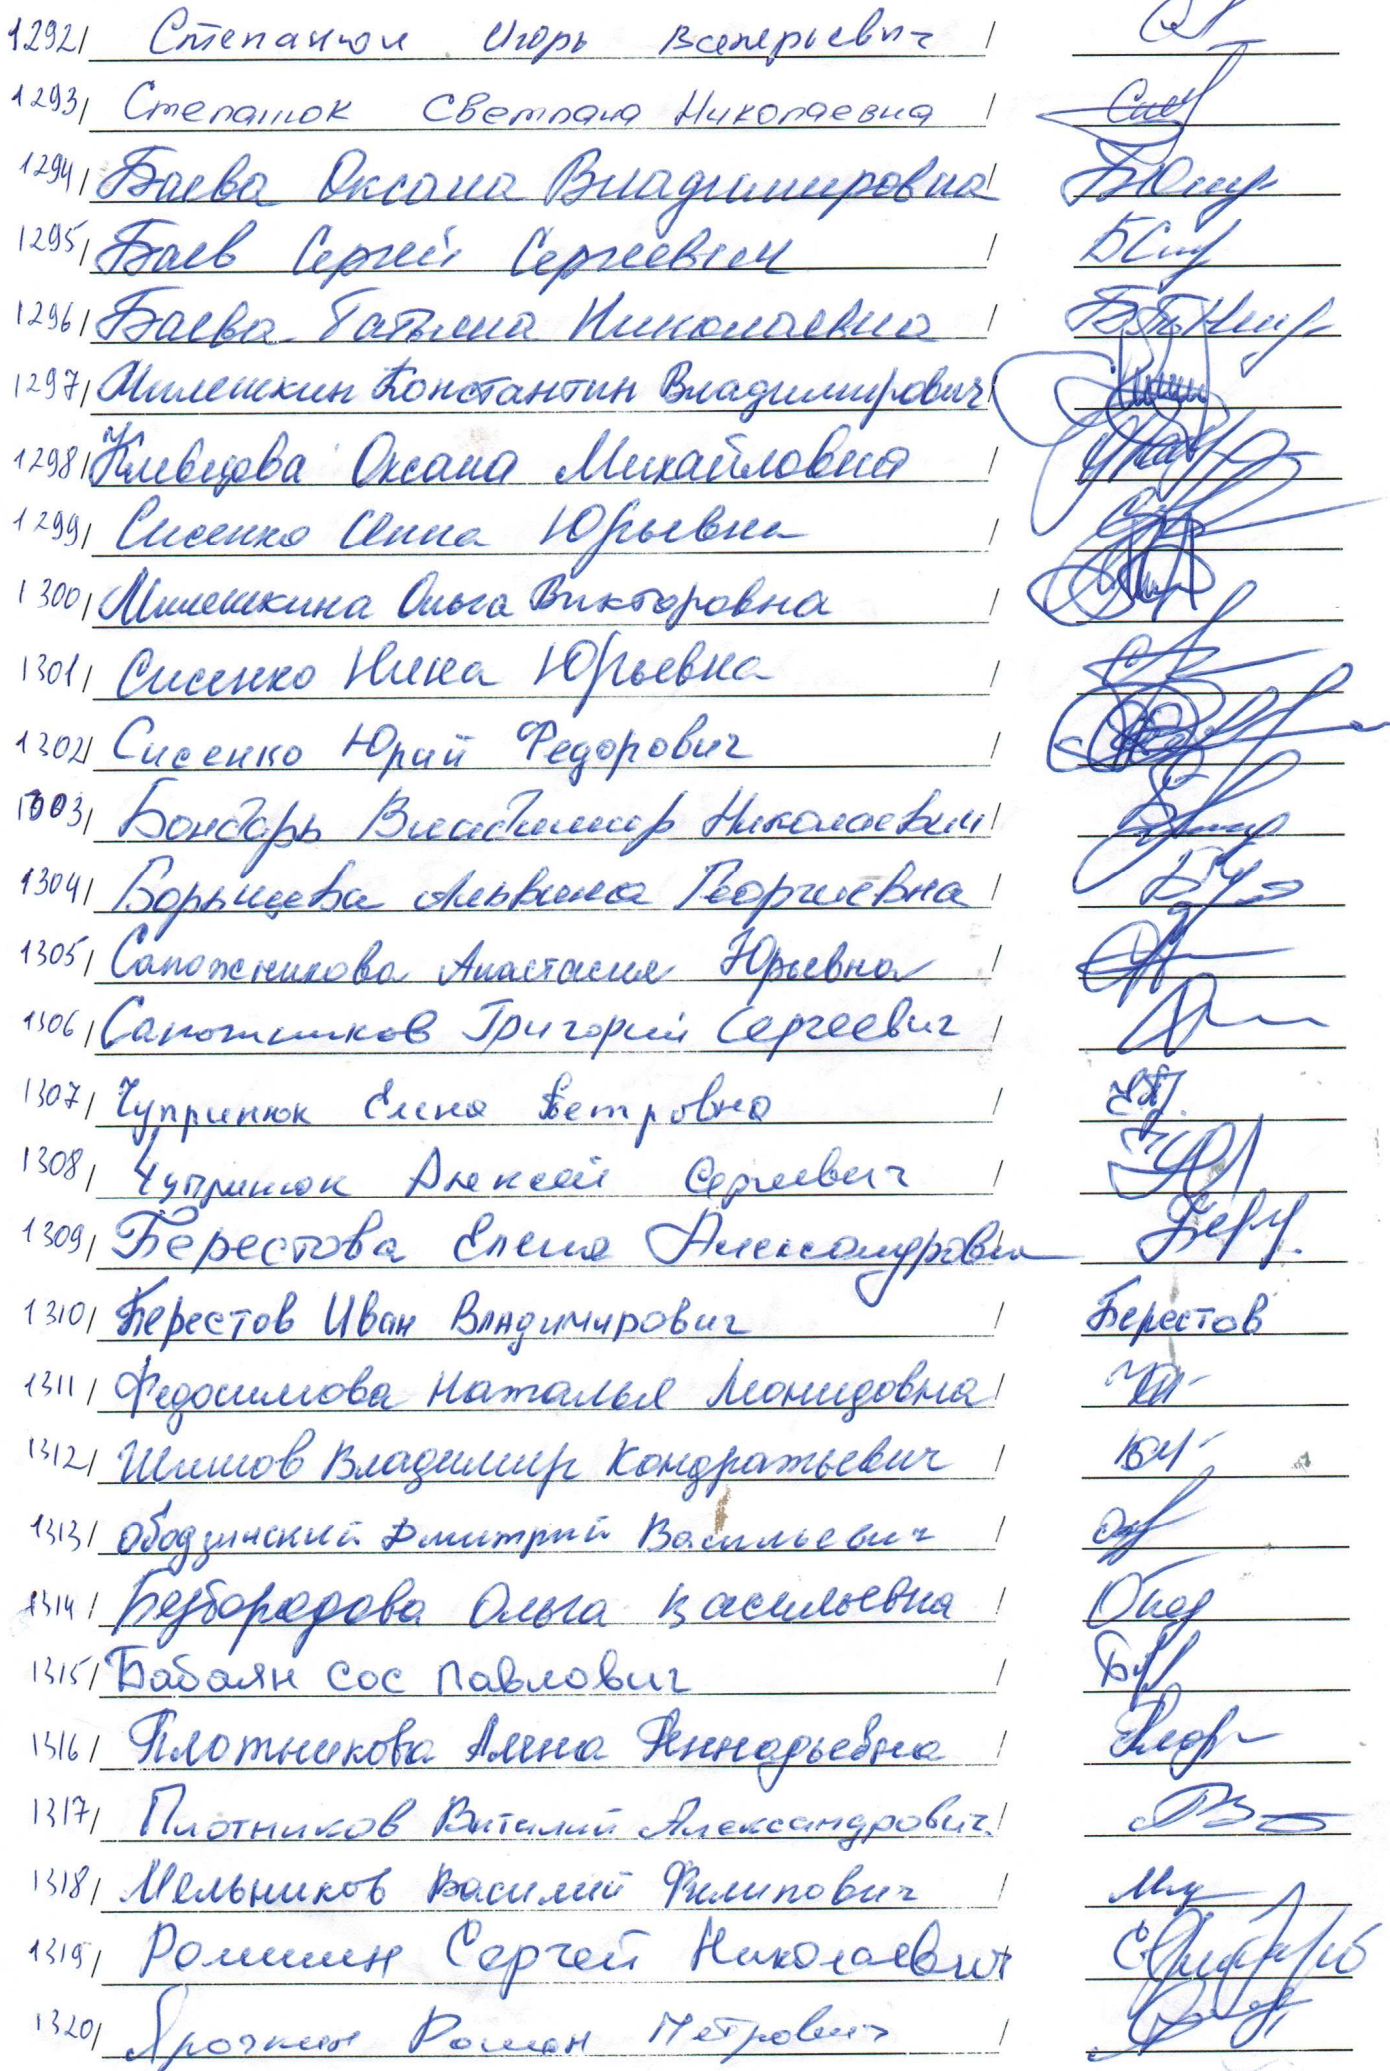 1292/ Степанюк Игорь Валерьевич /
1293/ Степанюк Светлана Николаевна /
1294/ Баева Оксана Владимировна /
1295/ Баев Сергей Сергеевич /
1296/ Баева Татьяна Николаевна /
1297/ Милешкин Константин Владимирович /
1298/ Клевцова Оксана Михайловна /
1299/ Сисенко Анна Юрьевна /
1300/ Милешкина Ольга Викторовна /
1301/ Сисенко Нина Юрьевна /
1302/ Сисенко Юрий Федорович /
1303/ Бондарь Владимир Николаевич /
1304/ Борынцева Альвина Георгиевна /
1305/ Сапожникова Анастасия Юрьевна /
1306/ Сапожников Григорий Сергеевич /
1307/ Чупринюк Елена Петровна /
1308/ Чупринюк Алексей Сергеевич /
1309/ Берестова Елена Александровна
1310/ Берестов Иван Владимирович / Берестов
1311/ Федосимова Наталья Леонидовна /
1312/ Шишов Владимир Кондратьевич /
1313/ Ободзинский Дмитрий Васильевич /
1314/ Безбородова Ольга Васильевна /
1315/ Бабаян Сос Павлович /
1316/ Плотникова Алена Геннадьевна /
1317/ Плотников Виталий Александрович /
1318/ Мельников Василий Филипович /
1319/ Ромашин Сергей Николаевич
1320/ Ярочкин Роман Петрович /